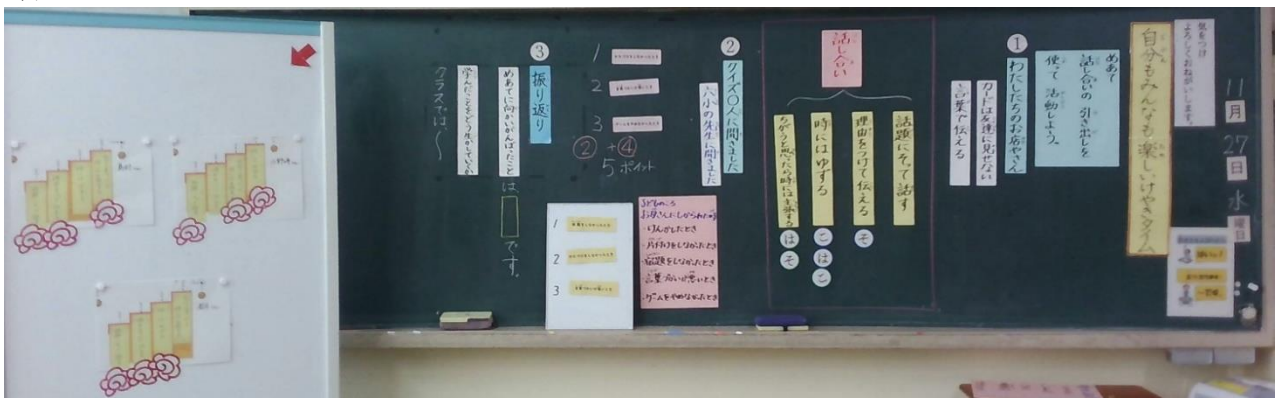 11月27日水曜日
気をつけ
よろしくおねがいします。
自分もみんなも楽しいけやきタイム
めあて
話し合いの引き出しを
使って活動しよう。
①
わたしたちのお店やさん
カードは友達に見せない
言葉で伝える
話し合い
話題にそって話す
理由をつけて伝える
そ
時にはゆずる
こ
は
こ
ちがうと思ったら時には主張する
は
そ
②
クイズ〇人に聞きました
六小の先生に聞きました
子どものころ
お母さんにしかられたのは
・けんかしたとき
・片付けをしなかったとき
・宿題をしなかったとき
・言葉づかいが悪いとき
・ゲームをやめなかったとき
1
2
3
1
2
3
②+④
5ポイント
③
振り返り
めあてに向かいがんばったことは
です。
学んだことをどう生かしていくか
クラスでは～